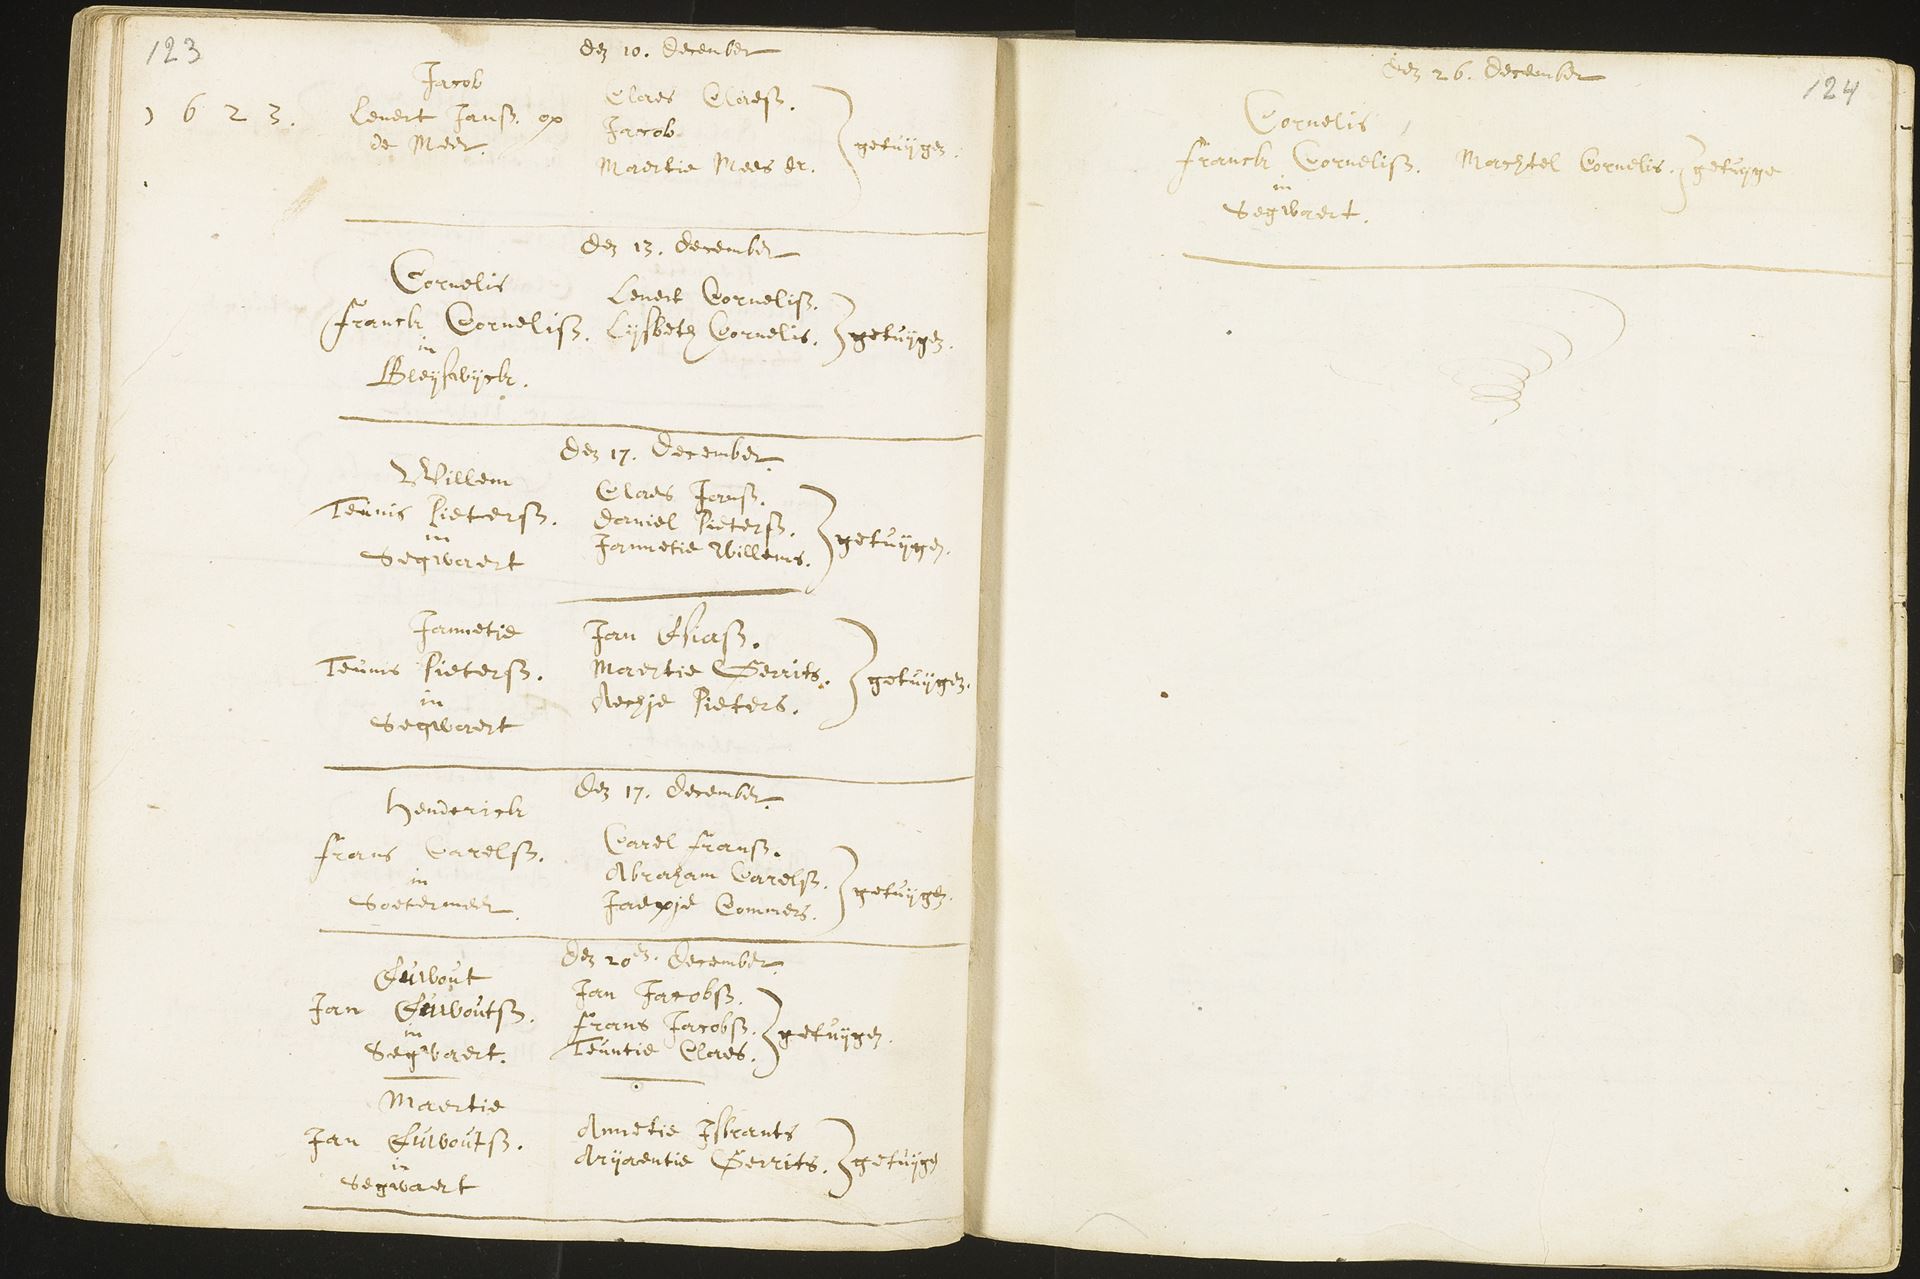 123
den 10. december
1623.
Jacob
Lenert Jansz. op
de Meer.
Claes Claesz.
Jacob
Maertie Mees dr.
getuijgen.
den 13. december
Cornelis
franck Cornelisz.
in
Bleijswijck.
Lenert Cornelisz.
Lijsbeth Cornelis.
getuijgen.
den 17. December.
Willem
Teunis Pietersz.
in
Segwaert
Claes Jansz.
Daniel Pietersz.
Jannetie Willems.
getuijgen.
Jannetje
Teunis Pietersz.
in
Segwaert
Jan Esiasz.
Maertie Gerrits.
Aechje Pieters.
getuijgen.
den 17. december.
Henderick
frans Carelsz.
in
Soetermeer.
Carel fransz.
Abraham Carelsz.
Jaepje Commers.
getuijgen.
den 20en. december.
Euwout
Jan Euwoutsz.
in
Segwaert.
Jan Jacobsz.
frans Jacobsz.
Teuntie Claes.
getuijgen.
Maertie
Jan Euwoutsz.
in
Segwaert
Annetie Isbrants
Arijaentie Gerrits.
getuijgen
124
den 26. december
Cornelis
franck Cornelisz.
in
Segwaert.
Machtel Cornelis.
getuyge